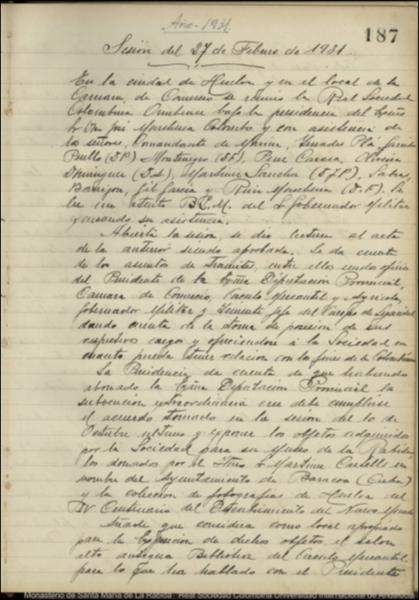 Año-1931
187
Sesión del 27 de Febrero de 1931
En la ciudad de Huelva y en el local de la
Camara de Comercio se reunió la Real Sociedad
Colombina Onubense bajo la presidencia del Señor
D. José Marchena Colombo y con asistencia de
los señores, Comandante de Marina, Terrades Plá, Garrido
Perelló (D.P.) Montenegro (D.F.), Oliveira
Dominguez (D.A.), Martinez Sanchez (D.J.P.),
Barrigon, Gil Garcia y Ruiz Marchena (D.F.). Se
lee un atento B.L.M. del Sr. Gobernador Militar
excusando su asistencia.
Abierta la sesion, se dio lectura al acta
de la anterior siendo aprobada. Se da cuenta
de los asuntos de tramites, entre ellos oficios
del Presidente de la Excma Diputacion Provincial,
Camara de Comercio, Circulo Mercantil y Agricola,
Gobernador Militar y Teniente Jefe del Cuerpo de Seguridad
dando cuenta de la toma de posesion de sus
respectivos cargos y ofreciendose á la Sociedad en
cuanto pueda tener relacion con los fines de la Colombina
La Presidencia da cuenta de que habiendo
abonado la Excma Diputacion Provincial la
subvencion extraordinaria cree debe cumplirse
el acuerdo tomado en la sesion del 10 de
Octubre ultimo y exponer los objetos adquiridos
por la Sociedad para su Museo de la Rabida
los donados por el Iltmo Sr Martinez en
nombre del Ayuntamiento de Baracoa (Cuba)
y la coleccion de fotografias de Huelva del
IV Centenario del Descubrimiento del Nuevo Mundo
Añade que considera como local apropiado
para la Exposicion de dichos objetos el salon
alto antigua Biblioteca del Circulo Mercantil
para lo que ha hablado con el Presidente
Monasterio de Santa María de La Rábida - Real Sociedad Colombina Onubense - Universidad Internacional de Andalucía